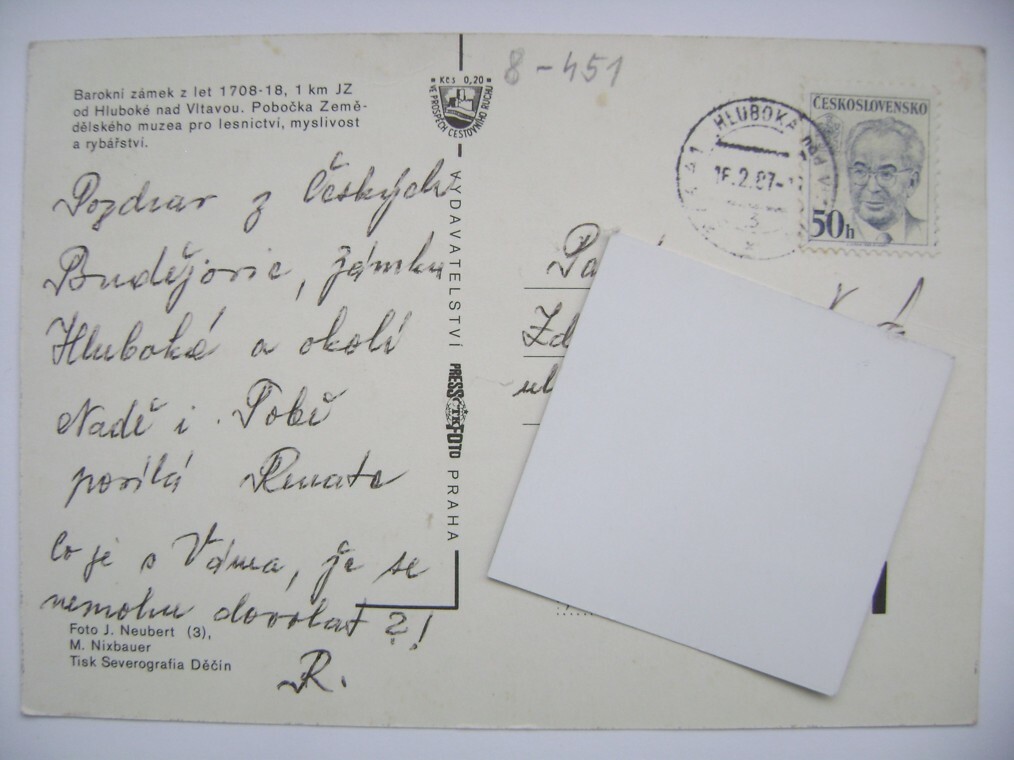 8-451
Barokní zámek z let 1708-18, 1 km JZ
od Hluboké nad Vltavou. Pobočka Země-
dělského muzea pro lesnictví, myslivost
a rybářství.
Kčs 0,20
VE PROSPĚCH CESTOVNÍHO RUCHU
HLUBOKÁ NAD V
16.2.87-1
ČESKOSLOVENSKO
50h
Pozdrav z Českých
Budějovic, zámku
Hluboké a okolí
Nadě i Tobě
posílá Renata
Co je s Váma, že se
nemohu dovolat ?!
R.
VYDAVATELSTVÍ PRESSFOTO PRAHA
ČTK
Zd
ul
Foto J. Neubert (3),
M. Nixbauer
Tisk Severografia Děčín